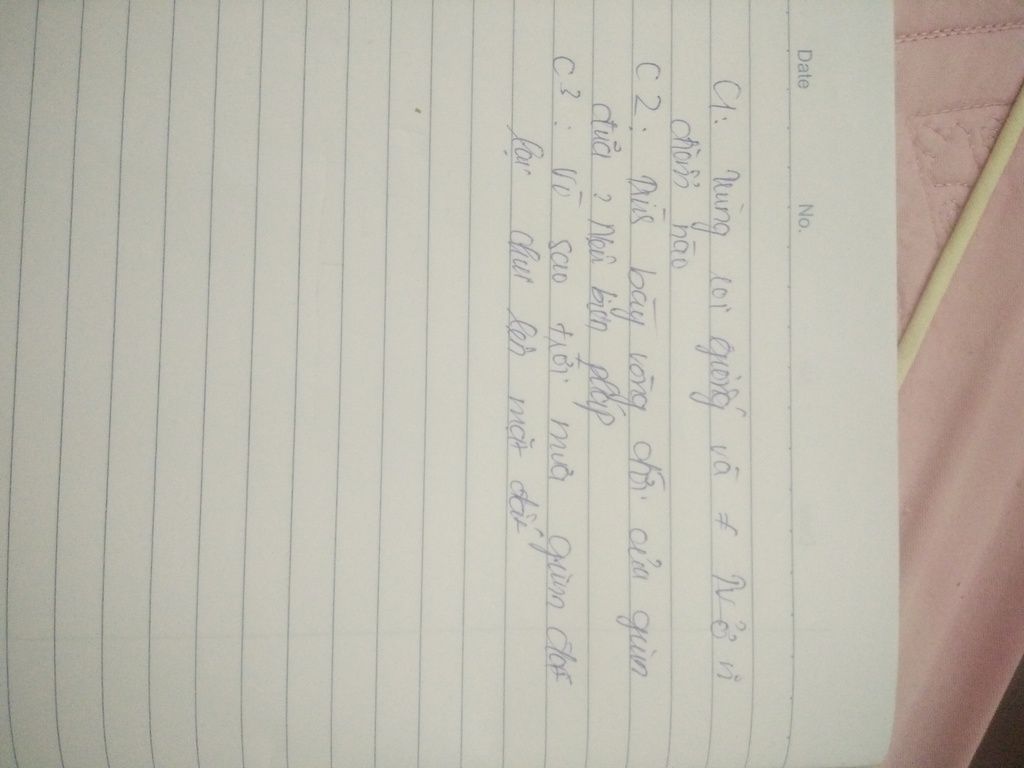 Date No.
C1: Trùng roi giống và ≠ TV ở n
điểm nào
C2: Trình bày vòng đời của giun
đũa? Nêu biện pháp
C3: Vì sao trời mưa giun đất
lại chui lên mặt đất